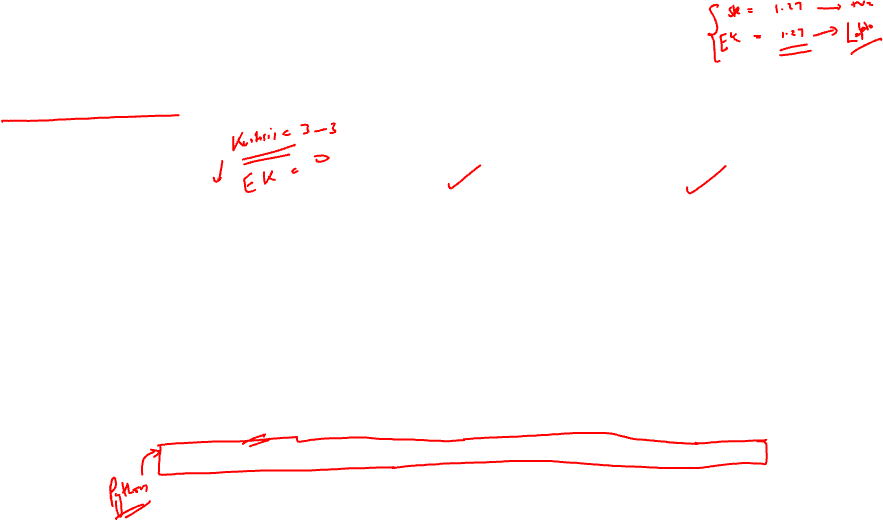 SK = 1.27 → +ve
EK = 1.27 → Lepto
Kurtosis = 3 - 3
EK = 0
Python